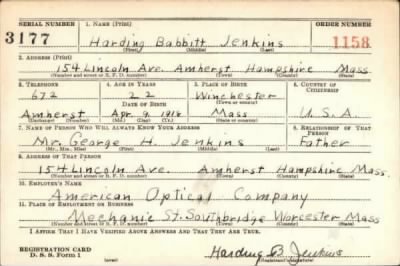 SERIAL NUMBER 1. NAME (Print) ORDER NUMBER
3177 Harding Babbitt Jenkins 1158
(First) (Middle) (Last)
2. ADDRESS (Print)
154 Lincoln Ave. Amherst Hampshire Mass.
(Number and street or R. F. D. number) (Town) (County) (State)
3. TELEPHONE 4. AGE IN YEARS 5. PLACE OF BIRTH 6. COUNTRY OF CITIZENSHIP
672 22 Winchester
DATE OF BIRTH (Town or county)
Amherst Apr. 9, 1918 Mass U.S.A.
(Exchange) (Mo.) (Day) (Yr.) (State or country)
7. NAME OF PERSON WHO WILL ALWAYS KNOW YOUR ADDRESS 8. RELATIONSHIP OF THAT PERSON
Mr. George H. Jenkins Father
(Mr., Mrs., Miss) (First) (Middle) (Last)
9. ADDRESS OF THAT PERSON
154 Lincoln Ave. Amherst Hampshire Mass.
(Number and street or R. F. D. number) (Town) (County) (State)
10. EMPLOYER'S NAME
American Optical Company
11. PLACE OF EMPLOYMENT OR BUSINESS
Mechanic St. Southbridge Worcester Mass
(Number and street or R. F. D. number) (Town) (County) (State)
I AFFIRM THAT I HAVE VERIFIED ABOVE ANSWERS AND THAT THEY ARE TRUE.
REGISTRATION CARD
D. S. S. Form 1 (over) Harding B. Jenkins
(Registrant's signature)